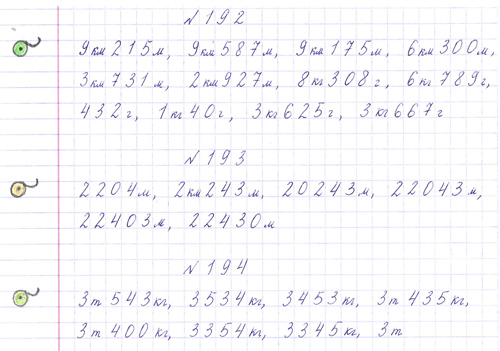 № 192
9 км 215 м, 9 км 587 м, 9 км 175 м, 6 км 300 м,
3 км 731 м, 2 км 927 м, 8 кг 308 г, 6 кг 789 г,
432 г, 1 кг 40 г, 3 кг 625 г, 3 кг 667 г
№ 193
2204 м, 2 км 243 м, 20243 м, 22043 м,
22403 м, 22430 м
№ 194
3 т 543 кг, 3534 кг, 3453 кг, 3 т 435 кг,
3 т 400 кг, 3354 кг, 3345 кг, 3 т